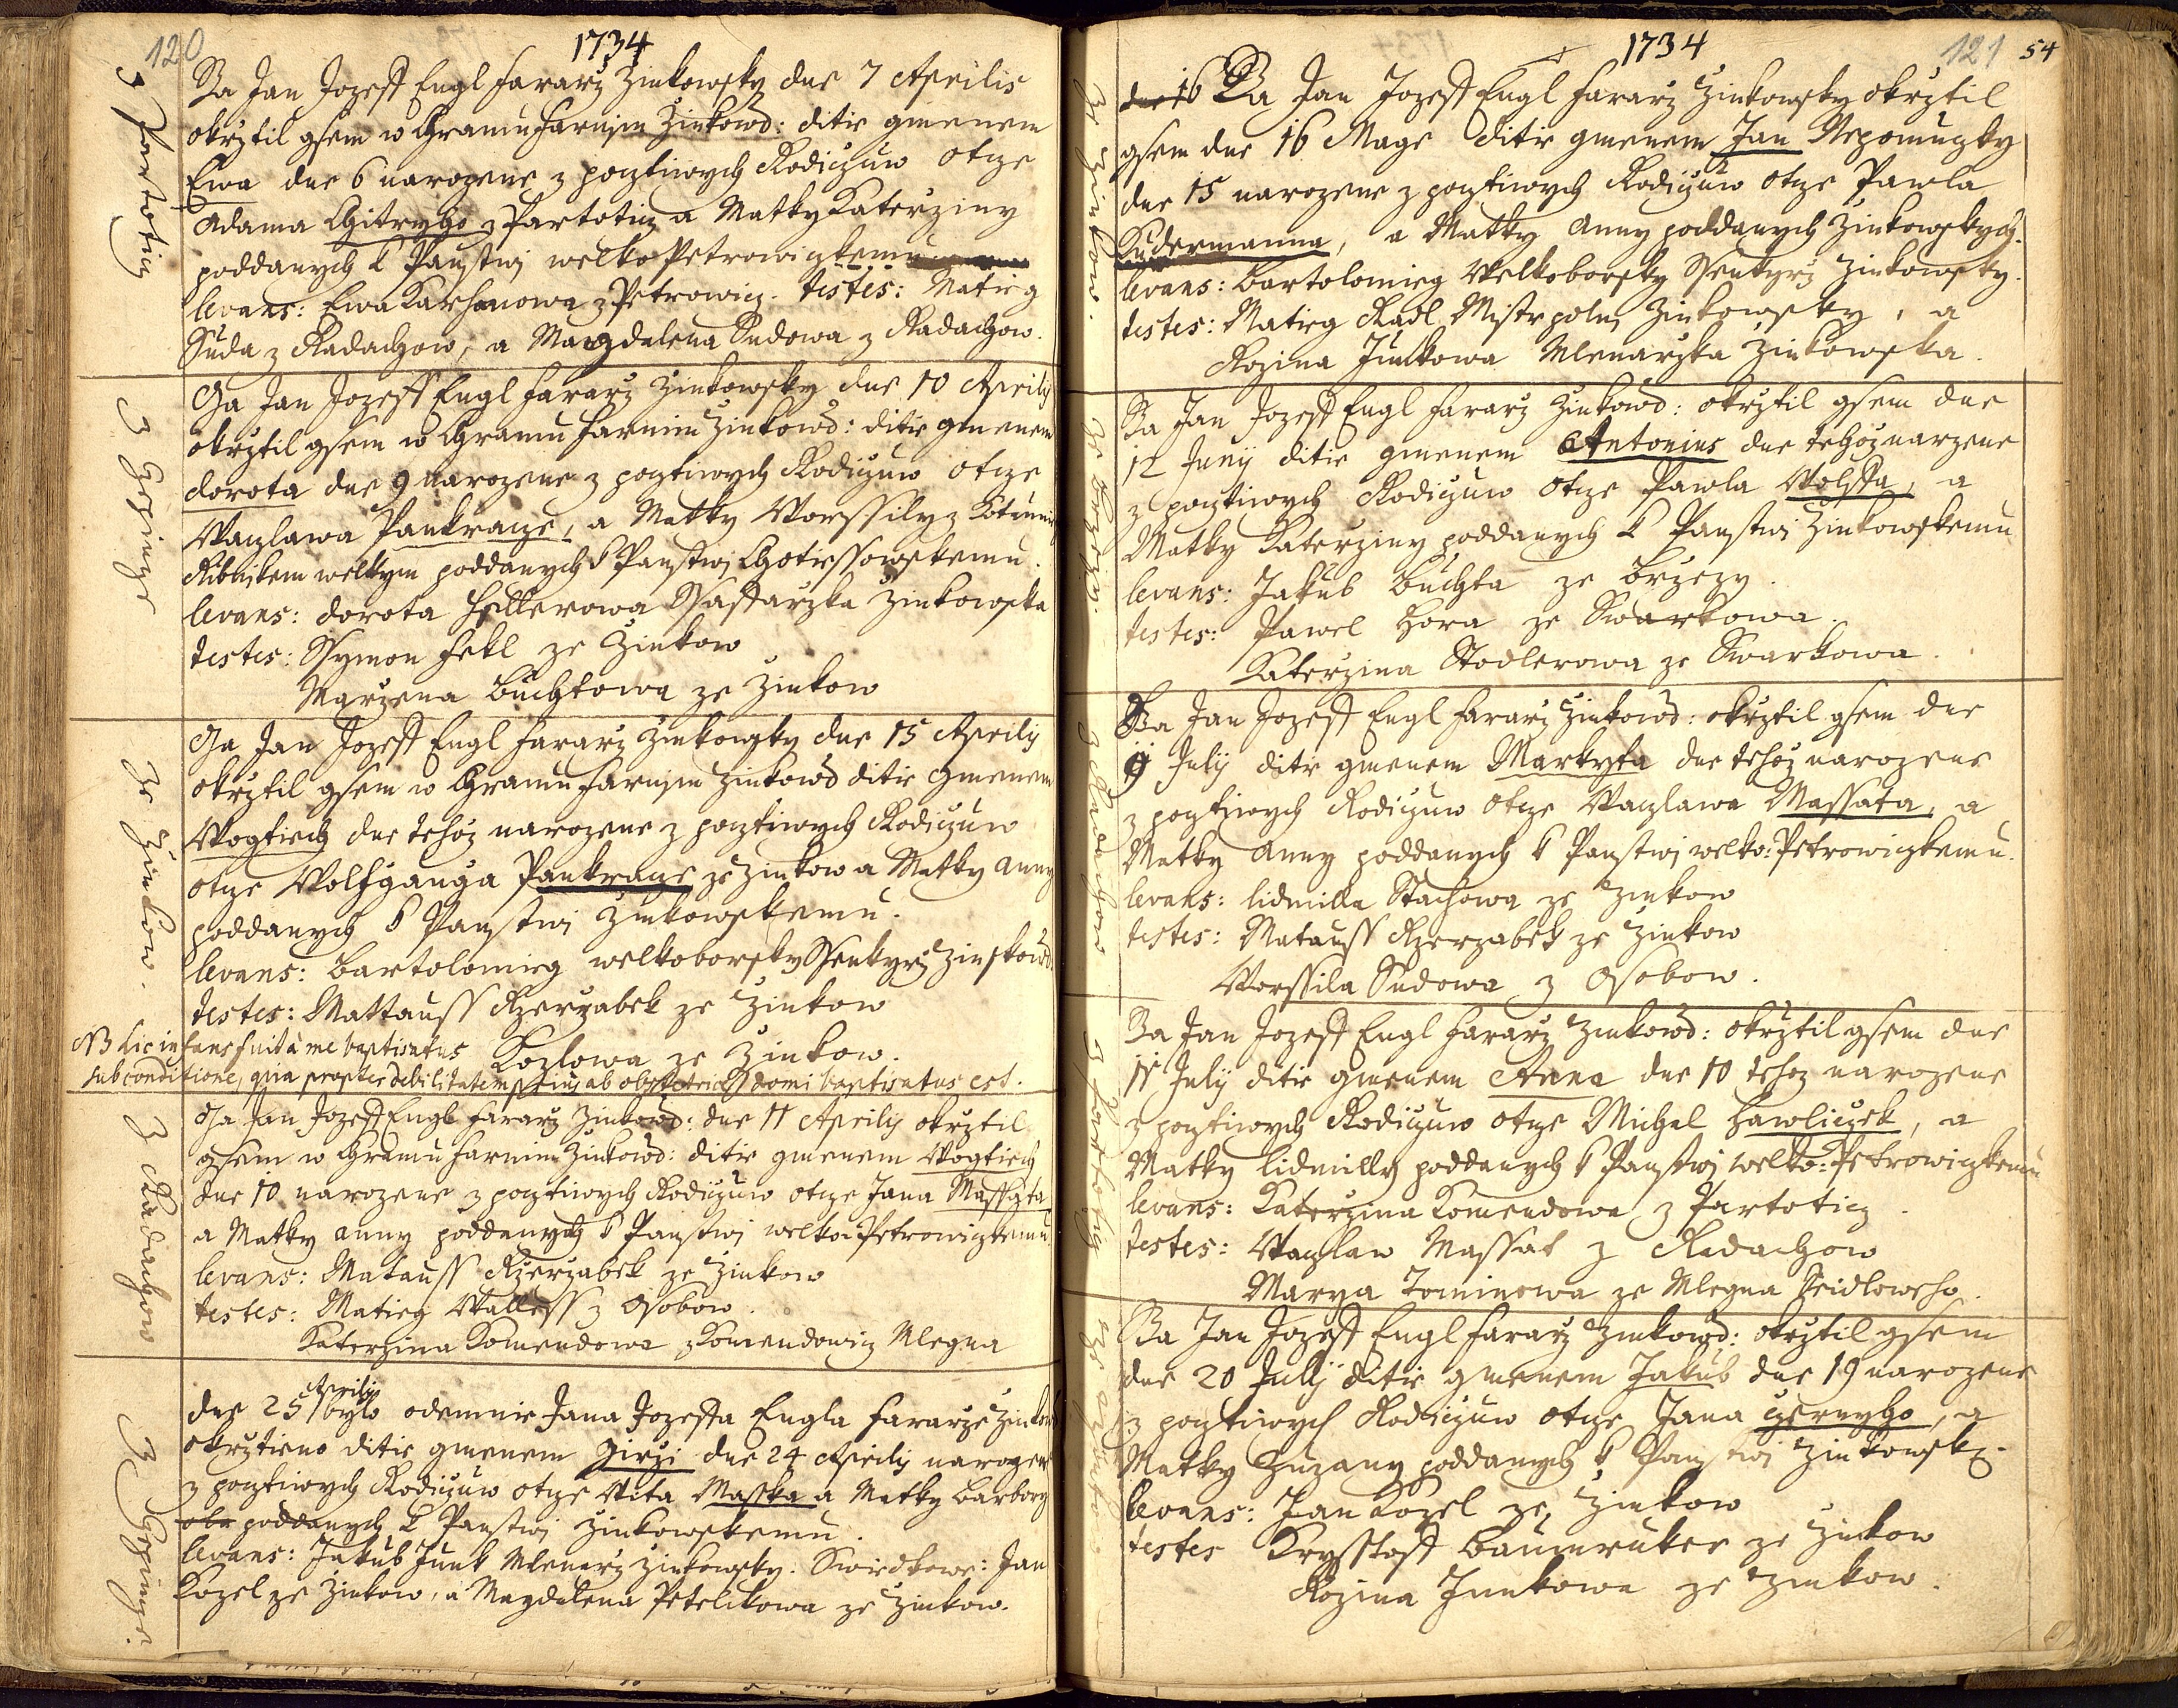 120
1734
z Partoticz
Ja Jan Jozeff Engl Fararz Zinkowsky dne 7 Aprilis
okrztil gsem w Chramu Farnim Zinkows: ditie gmenem
Ewa dne 6 narozene z pocztiwych Rodiczuw otcze
Adama Chitryho z Partoticz a Matky Katerziny
poddanych k Panstwi welko Petrowiczkemu
levans: Ewa Karhanowa z Petrowicz. testes: Matieg
Suda z Radachow, a Magdalena Sudowa z Radachow.
Z Gezinye
Ja Jan Jozeff Engl Fararz Zinkowsky dne 10 Aprilis
okrztil gsem w Chramu Farnim Zinkows: ditie gmenem
dorota dne 9 narozene z pocztiwych Rodiczuw otcze
Waczlawa Pankracze, a Matky Worssily z
welkym poddanych k Panstwi Chotiessowskemu.
levans: dorota Hellerowa Ssaffarzka Zinkowska
testes: Ssymon Fekl ze Zinkow
Marzena Buchtowa ze Zinkow
Ze Zinkow.
Ja Jan Jozeff Engl Fararz Zinkowsky dne 15 Aprilis
okrztil gsem w Chramu Farnim Zinkows ditie gmenem
Wogtiech dne tehoz narozene z pocztiwych Rodiczuw
otcze Wolfganga Pankracze ze Zinkow a Matky Anny
poddanych k Panstwi Zinkowskemu.
levans: Bartolomieg welkoborsky Ssenkyrz Zinkows.
testes: Mattauss Rzerzabek ze Zinkow
Kozlowa ze Zinkow.
NB hic infans fuit à me baptisatus
sub conditione, quia propter debilitatem prius ab obstetrice domi baptisatus est.
Z Radachow
Ja Jan Jozeff Engl Fararz Zinkows: dne 11 Aprilis okrztil
gsem w Chramu Farnim Zinkows: ditie gmenem Wogtiech
dne 10 narozene z pocztiwych Rodiczuw otcze Jana Massata
a Matky Anny poddanych k Panstwi welko: Petrowiczkemu
levans: Matauss Rzerzabek ze Zinkow
testes: Matieg Walless z Osobow.
Katerzina Komendowa z Komendowicz Mlegna
Z Gezinye.
Aprilis
dne 25 bylo odemnie Jana Jozeffa Engla Fararze Zinkows
okrztieno ditie gmenem Girzi dne 24 Aprilis narozene
z pocztiwych Rodiczuw otcze Wita Masska a Matky Barbory
obu poddanych k Panstwi Zinkowskemu.
levans: Jakub Junk Mlenarz Zinkowsky. Swiedkowe: Jan
Kozel ze Zinkow, a Magdalena Petelikowa ze Zinkow.
1734
121 54
Ze Zinkow.
dne 16 Ja Jan Jozeff Engl Fararz Zinkowsky okrztil
gsem dne 16 Mage ditie gmenem Jan Nepomuczky
dne 15 narozene z pocztiwych Rodiczuw otcze Pawla
Sudermanna, a Matky Anny poddanych Zinkowskych.
levans: Bartolomieg Welkoborsky Ssenkyrz Zinkowsky.
testes: Matieg Radl Mistr polni Zinkowsky, a
Rozina Junkowa Mlenarzka Zinkowska.
Ze Brzezy.
Ja Jan Jozeff Engl Fararz Zinkows: okrztil gsem dne
12 Junij ditie gmenem Antonius dne tehoz narzene
z pocztiwych Rodiczuw otcze Pawla Wolffa, a
Matky Katerziny poddanych k Panstwi Zinkowskemu
levans: Jakub Buchta ze Brzezy.
testes: Pawel Hora ze Swarkowa.
Katerzina Stodlerowa ze Swarkowa.
z Radachow
Ja Jan Jozeff Engl Fararz Zinkows: okrztil gsem dne
9 Julij ditie gmenem Markyta dne tehoz narozene
z pocztiwych Rodiczuw otcze Waczlawa Massata, a
Matky Anny poddanych k Panstwi welko: Petrowiczkemu.
levans: lidmilla Stachowa ze Zinkow
testes: Matauss Rzerzabek ze Zinkow
Worssila Sudowa z Osobow.
z Partoticz
Ja Jan Jozeff Engl Fararz Zinkows: okrztil gsem dne
11 Julij ditie gmenem Anna dne 10 tehoz narozene
z pocztiwych Rodiczuw otcze Michal Hawliczek, a
Matky lidmilly poddanych k Panstwi welko: Petrowiczkemu
levans: Katerzina Komendowa z Partoticz
testes: Waczlaw Massat z Radachow
Marya Tominowa ze Mlegna Seidloweho.
Ja Jan Jozeff Engl Fararz Zinkows: okrztil gsem
dne 20 Julij ditie gmenem Jakub dne 19 narozene
z pocztiwych Rodiczuw otcze Jana Czernyho, a
Matky Zuzany poddanych k Panstwi Zinkowsk:
levans: Jan Kozel ze Zinkow
testes Krysstoff Baumruker ze Zinkow
Rozina Junkowa ze Zinkow.